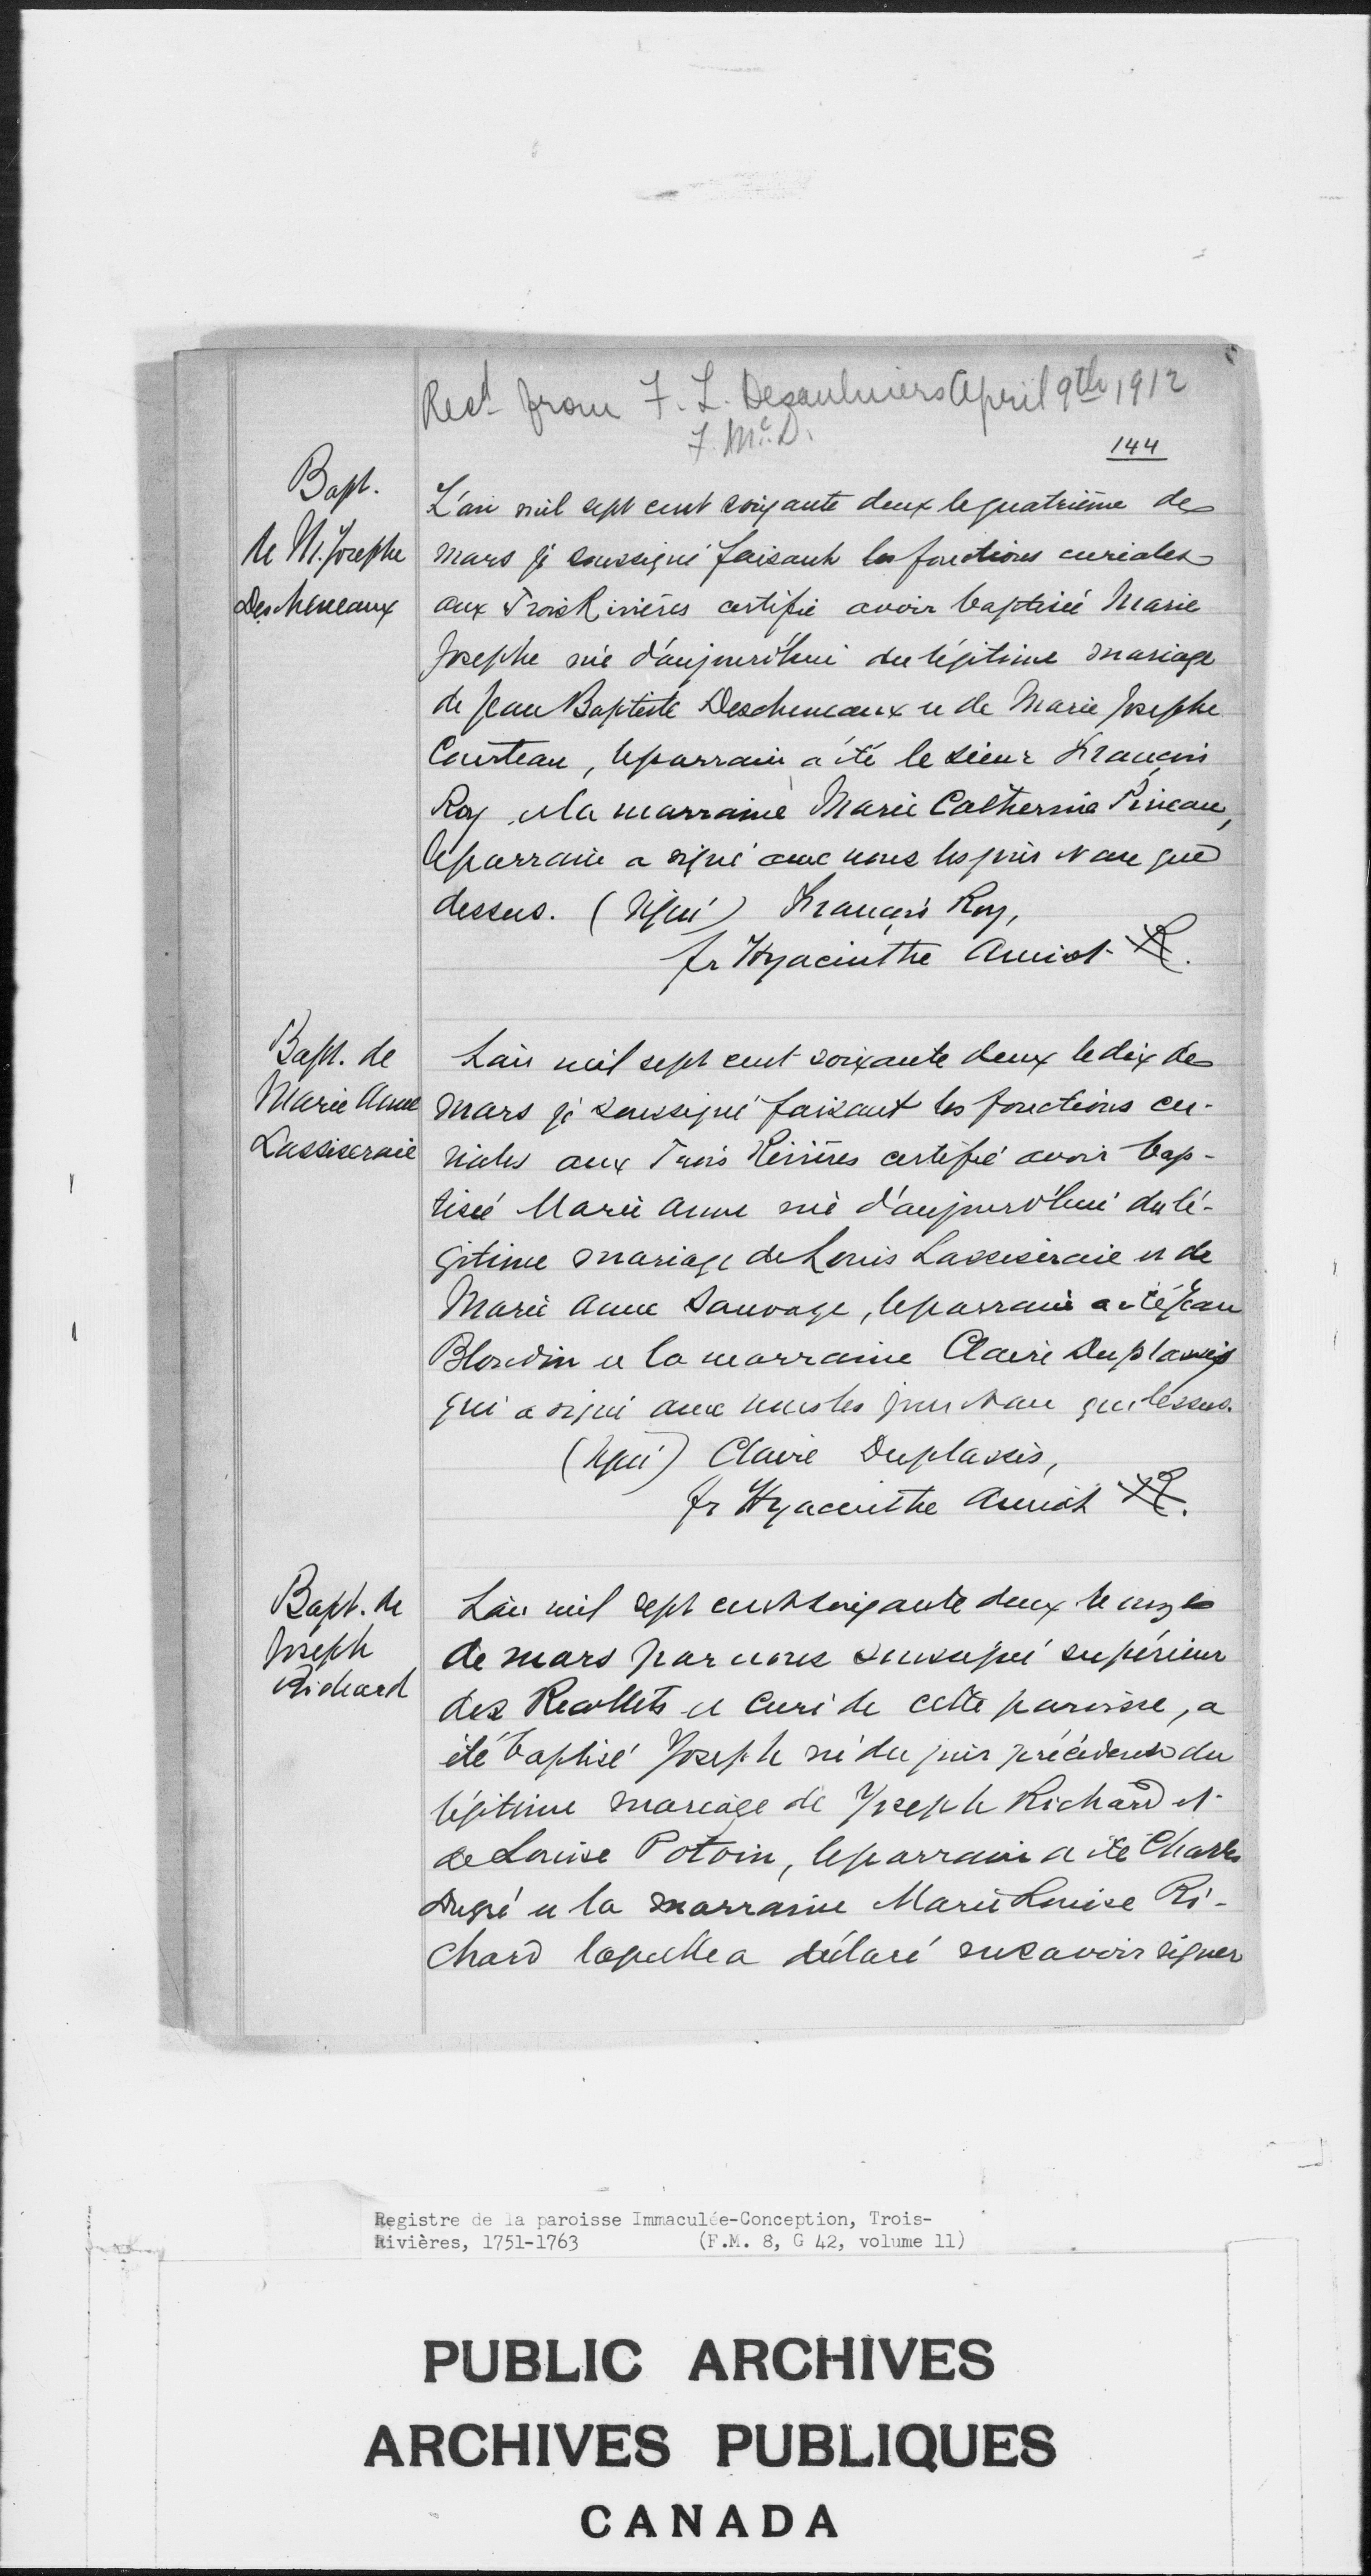 Recd from F. L. Desaulniers April 9th 1912
F. McD.
144
Bapt.
de M. Josephe
Descheneaux
L'an mil sept cent soixante deux le quatrième de
mars je soussigné faisant les fonctions curiales
aux Trois Rivières certifie avoir baptisée Marie
Josephe née d'aujourd'hui du légitime mariage
de Jean Baptiste Descheneaux et de Marie Josephe
Courteau, le parrain a été le sieur François
Roy et la marraine Marie Catherine Pineau,
le parrain a signé avec nous les jour et an que
dessus. (signé) François Roy,
fr Hyacinthe Amiot R.
Bapt. de
Marie Anne
Lassiseraie
L'an mil sept cent soixante deux le dix de
mars je soussigné faisant les fonctions cu-
riales aux Trois Rivières certifie avoir bap-
tisée Marie Anne née d'aujourd'hui du lé-
gitime mariage de Louis Lassiseraie et de
Marie Anne Sauvage, le parrain a été Jean
Blondin et la marraine Claire Duplassis
qui a signé avec nous les jour et an que dessus.
(signé) Claire Duplassis,
fr Hyacinthe Amiot R.
Bapt. de
Joseph
Richard
L'an mil sept cent soixante deux le onze
de mars par nous soussigné supérieur
des Recollets et curé de cette paroisse, a
été baptisé Joseph né du jour précédent du
légitime mariage de Joseph Richard et
de Louise Potvin, le parrain a été Charles
Dugré et la marraine Marie Louise Ri-
chard laquelle a déclaré ne savoir signer
Registre de la paroisse Immaculée-Conception, Trois-
Rivières, 1751-1763 (F.M. 8, G 42, volume 11)
PUBLIC ARCHIVES
ARCHIVES PUBLIQUES
CANADA